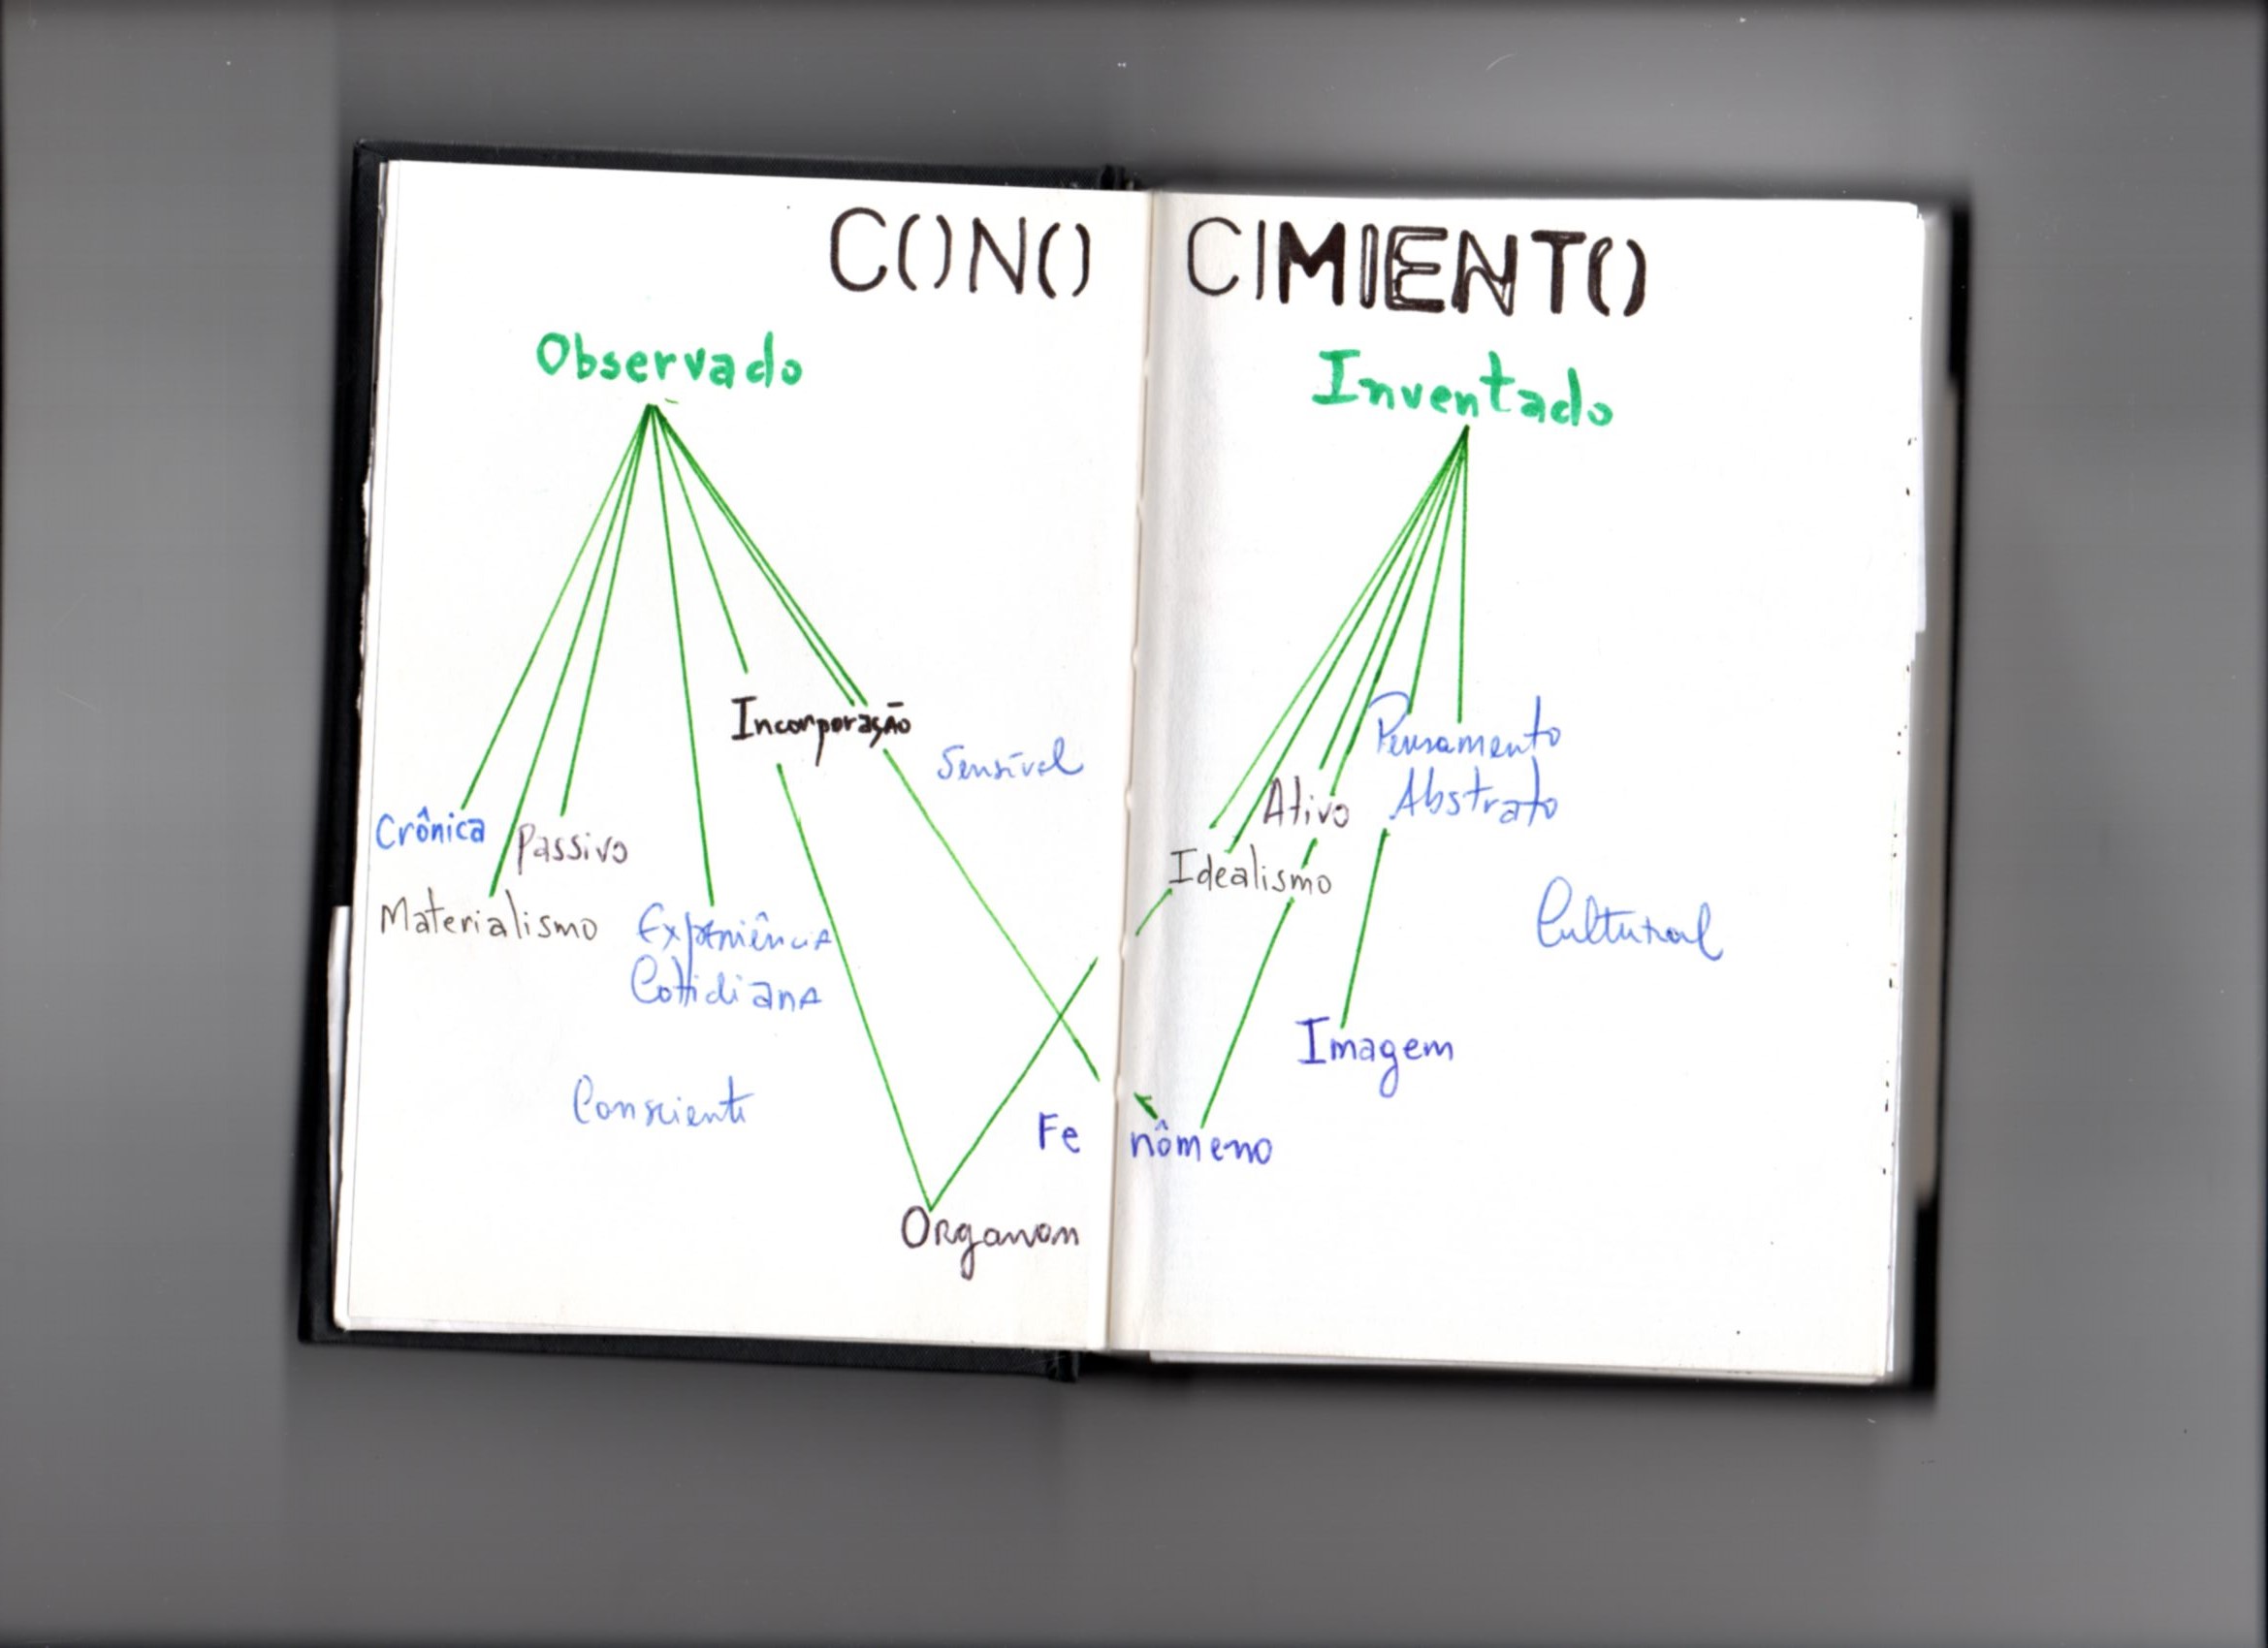 CONOCIMIENTO
Observado
Inventado
Incorporação
Sensível
Crônica
Passivo
Materialismo
Experiência
Cotidiana
Consciente
Fenômeno
Organon
Pensamento
Abstrato
Ativo
Idealismo
Cultural
Imagem